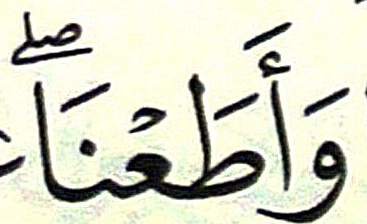 وَأَطَعْنَاۖ